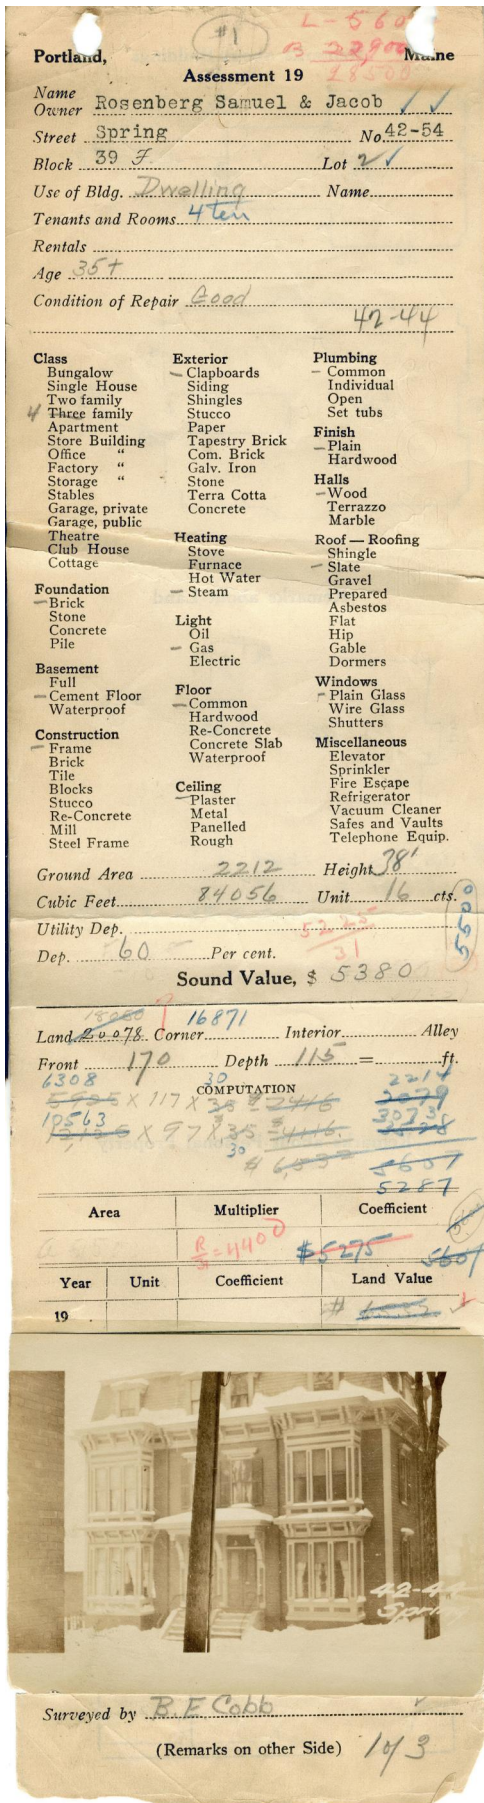 #1
L - 560
B 22900
18500
Portland, Maine
Assessment 19
Name
Owner Rosenberg Samuel & Jacob
Street Spring No 42-54
Block 39 F Lot 2
Use of Bldg. Dwelling Name
Tenants and Rooms 4 ten
Rentals
Age 35+
Condition of Repair Good
42-44
Class
Bungalow
Single House
Two family
4 Three family
Apartment
Store Building
Office "
Factory "
Storage "
Stables
Garage, private
Garage, public
Theatre
Club House
Cottage
Foundation
Brick
Stone
Concrete
Pile
Basement
Full
Cement Floor
Waterproof
Construction
Frame
Brick
Tile
Blocks
Stucco
Re-Concrete
Mill
Steel Frame
Exterior
Clapboards
Siding
Shingles
Stucco
Paper
Tapestry Brick
Com. Brick
Galv. Iron
Stone
Terra Cotta
Concrete
Heating
Stove
Furnace
Hot Water
Steam
Light
Oil
Gas
Electric
Floor
Common
Hardwood
Re-Concrete
Concrete Slab
Waterproof
Ceiling
Plaster
Metal
Panelled
Rough
Plumbing
Common
Individual
Open
Set tubs
Finish
Plain
Hardwood
Halls
Wood
Terrazzo
Marble
Roof — Roofing
Shingle
Slate
Gravel
Prepared
Asbestos
Flat
Hip
Gable
Dormers
Windows
Plain Glass
Wire Glass
Shutters
Miscellaneous
Elevator
Sprinkler
Fire Escape
Refrigerator
Vacuum Cleaner
Safes and Vaults
Telephone Equip.
Ground Area 2212 Height 38'
Cubic Feet 84056 Unit 16 cts.
5500
Utility Dep. 5225
31
Dep. 60 Per cent.
Sound Value, $ 5380
18080 16871
Land 20078 Corner Interior Alley
Front 170 Depth 115 = ft.
6308 30 2214
COMPUTATION
5925 X 117 X 35 = 2416 2079
10563 3073
X 97 X 35 = 4116
30
5607
5287
Area Multiplier Coefficient
= 4400 $5275 5607
Year Unit Coefficient Land Value
19 #
42-44
Spring
Surveyed by B. E Cobb
(Remarks on other Side) 1 of 3